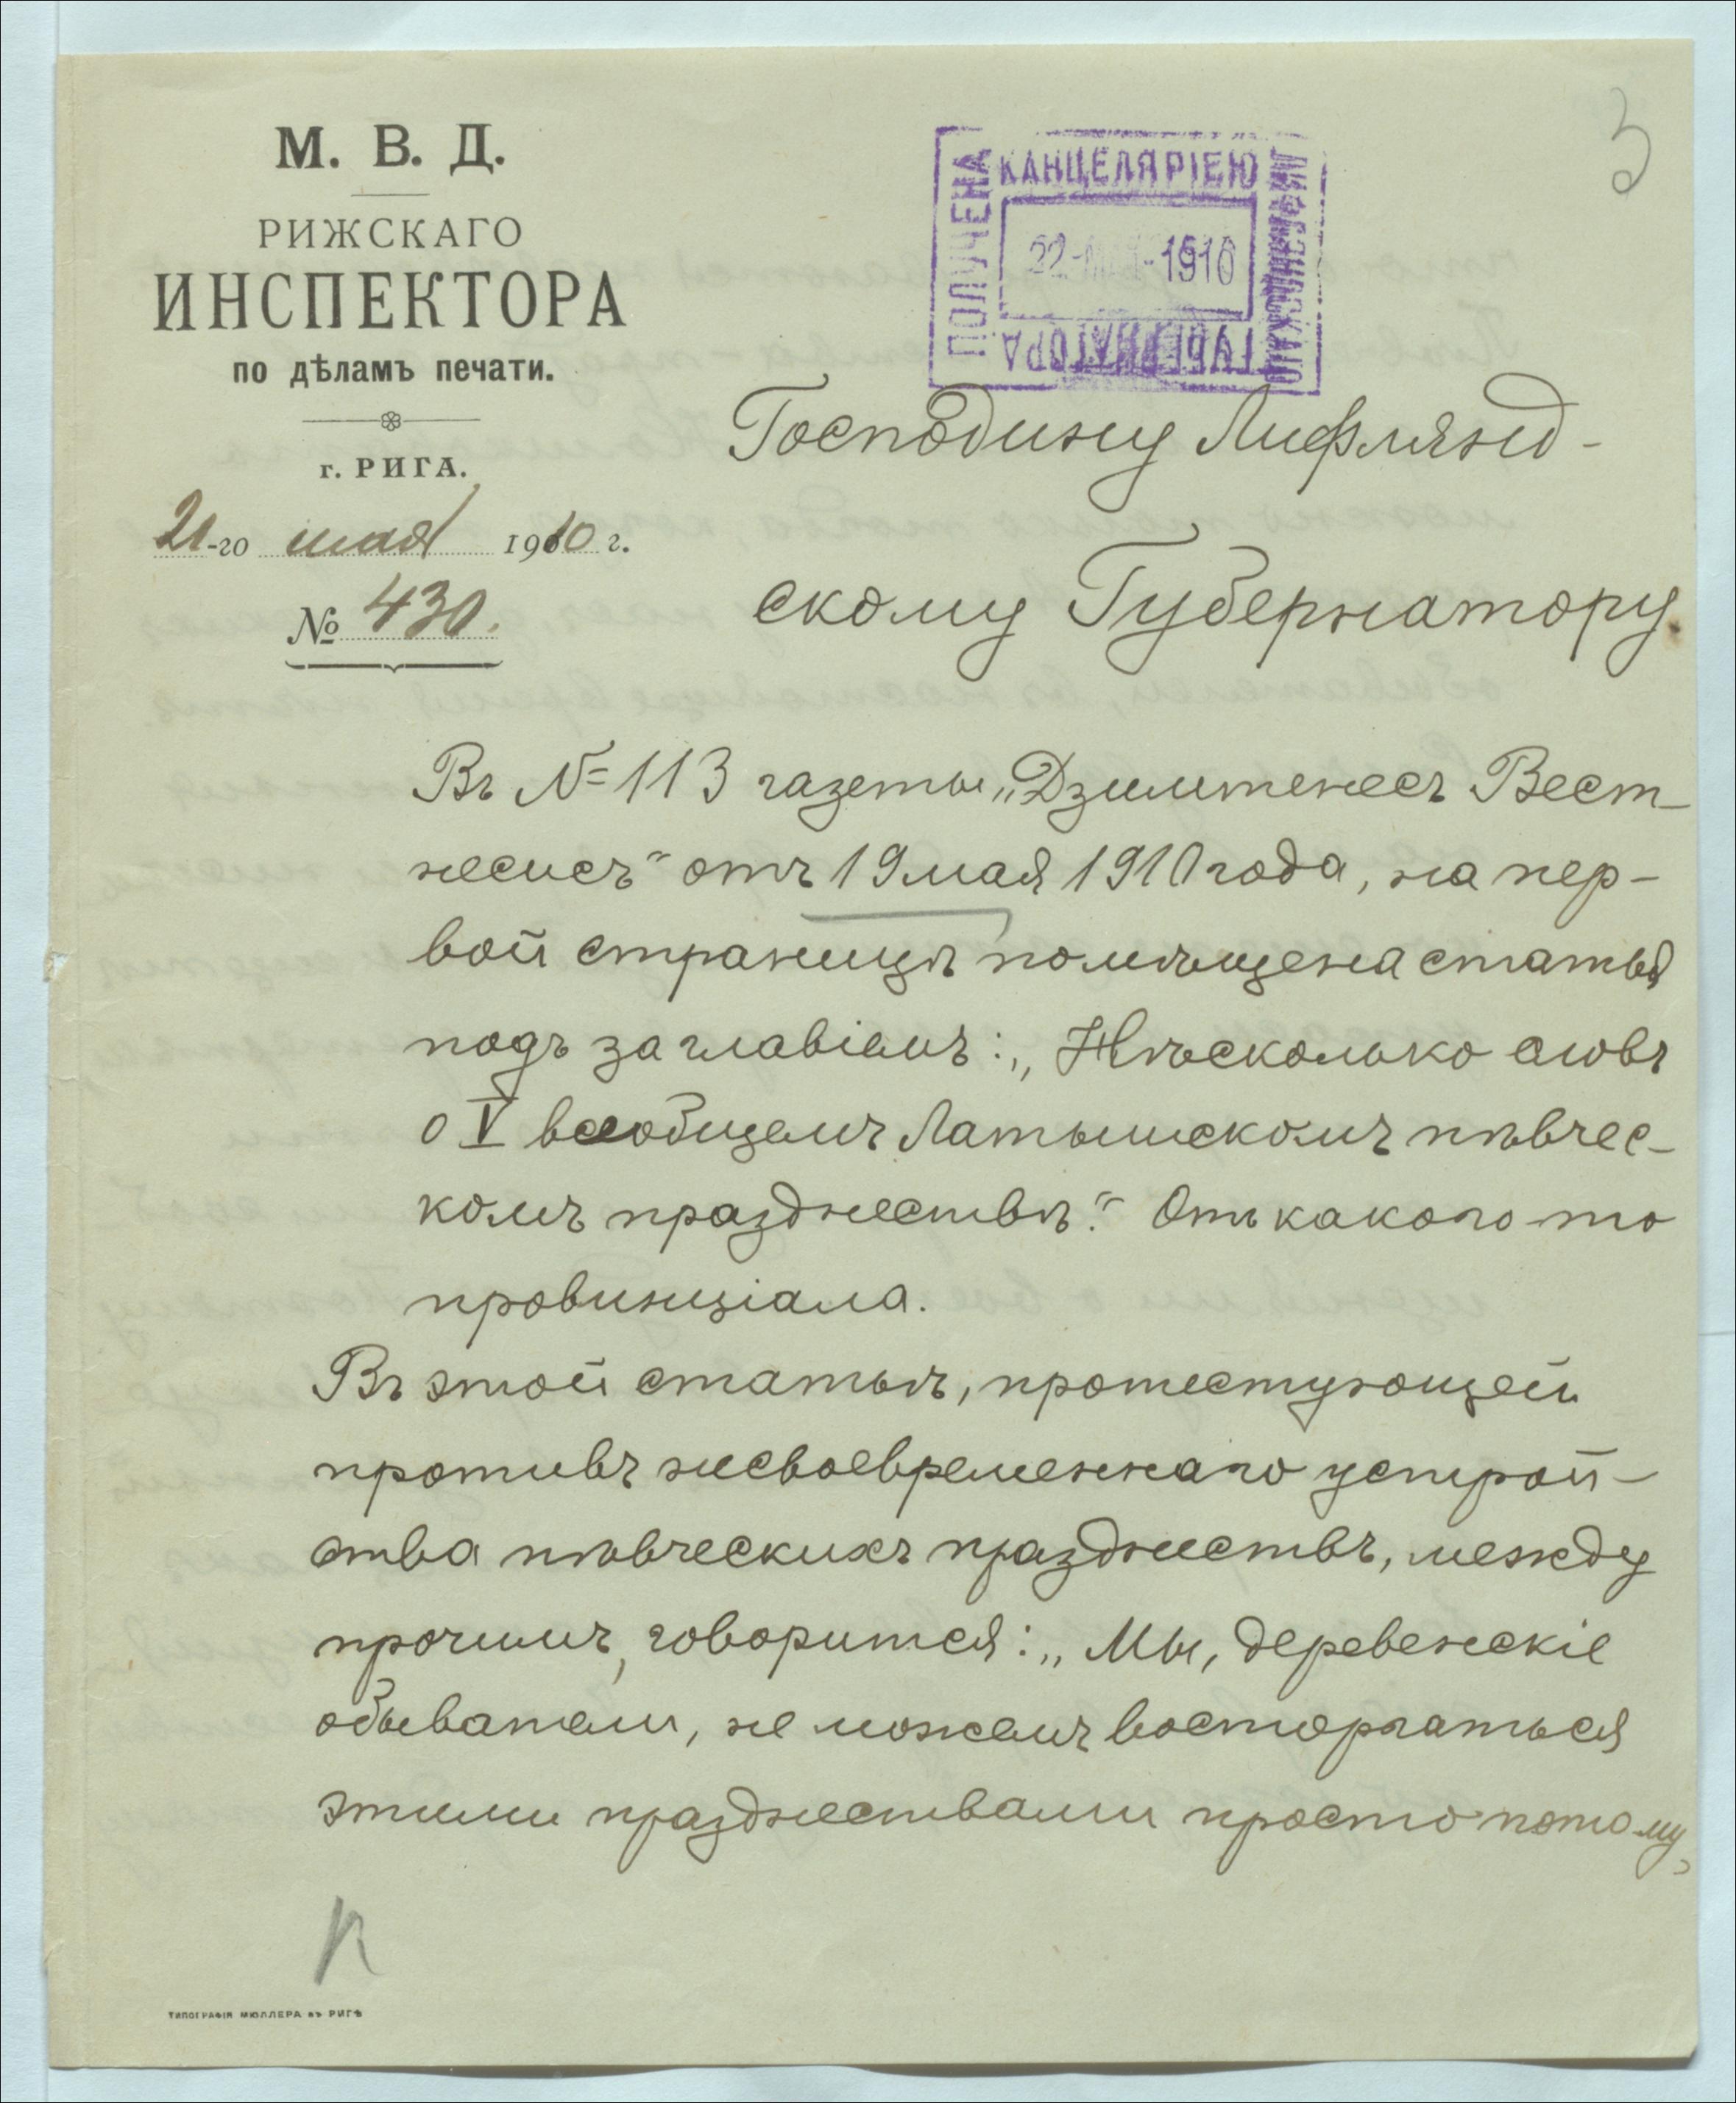 М. В. Д.
РИЖСКАГО
ИНСПЕКТОРА
по дѣламъ печати.
г. РИГА.
21-го мая 1910 г.
№ 430.
ПОЛУЧЕНА
КАНЦЕЛЯРІЕЮ
ЛИФЛЯНДСКАГО
ГУБЕРНАТОРА
22 МАЯ 1910
3
Господину Лифлянд-
скому Губернатору.
Въ № 113 газеты „Дзимтенесъ Вест-
несисъ“ отъ 19 мая 1910 года, на пер-
вой страницѣ помѣщена статья
подъ заглавіемъ: „Нѣсколько словъ
о V всеобщемъ Латышскомъ пѣвчес-
комъ празднествѣ.“ Отъ какого то
провинціала.
Въ этой статьѣ, протестующей
противъ несвоевременнаго устрой-
ства пѣвческихъ празднествъ, между
прочимъ, говорится: „Мы, деревенскіе
обыватели, не можемъ восторгаться
этими празднествами просто потому,
ТИПОГРАФІЯ МЮЛЛЕРА ВЪ РИГѢ